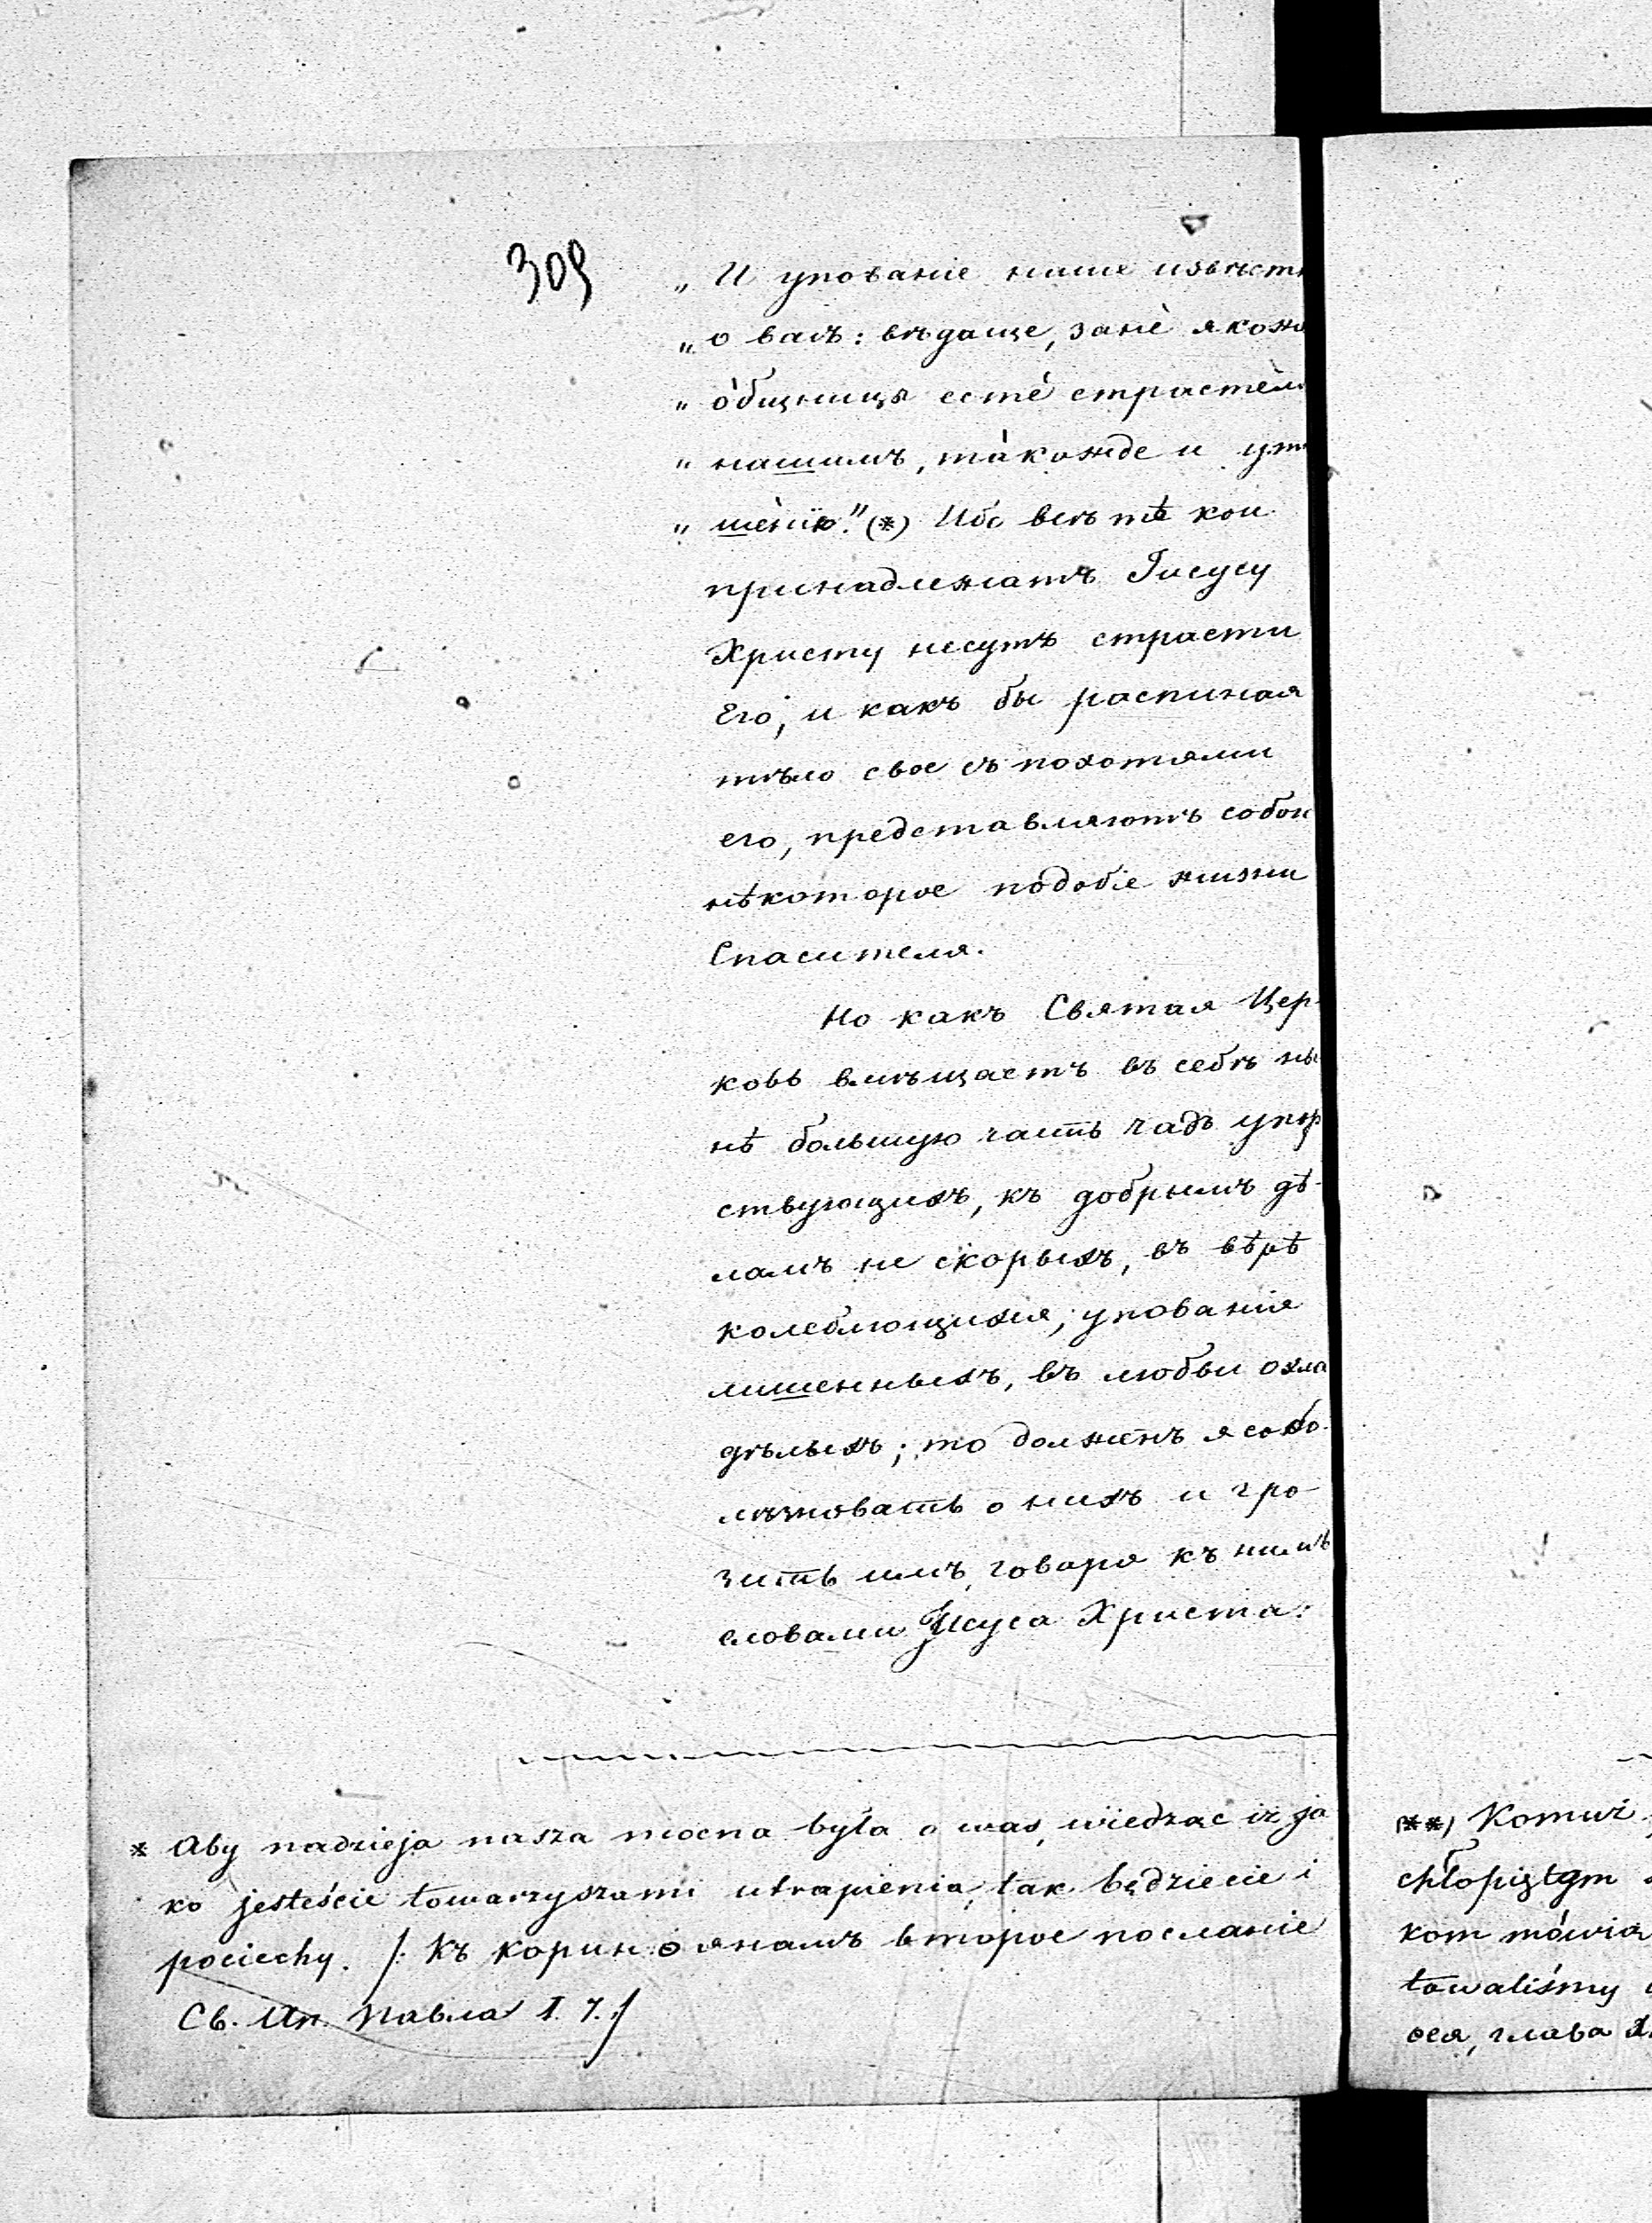 309
„ И упованіе наше извѣстн
„ о васъ: вѣдяще, зане́ якоже
„ о́бщницы есте́ страсте́м
„ нашимъ, та́кожде и утѣ
„ ше́нію." (*) Ибо всѣ тѣ кои
принадлежатъ Іисусу
Христу несутъ страсти
Его, и какъ бы распиная
тѣло свое съ похотями
его, представляютъ собою
нѣкоторое подобіе жизни
Спасителя.
Но какъ Святая Цер-
ковь вмѣщаетъ въ себѣ ны
нѣ большую часть чадъ упор
ствующихъ, къ добрымъ дѣ-
ламъ не скорыхъ, въ вѣрѣ
колеблющихся, упованія
лишенныхъ, въ любви охла
дѣлыхъ; то долженъ я собо-
лѣзновать о нихъ и гро-
зить имъ, говоря къ нимъ
словами Іисуса Христа:
* Aby nadzieja nasza mocna była o was, wiedzac iz ja
ko jesteście towarzyszami utrapienia, tak będziecie i
pociechy. /: Къ коринѳянамъ второе посланіе
Св. Ап. Павла I. 7. /
(**) Komuż
chłopiętom
kom mówią
towaliśmy
ѳея, глава